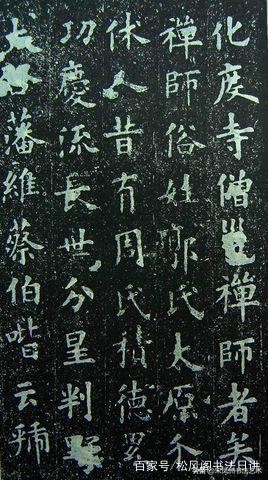 化度寺僧邕禪師者矣
禪師俗姓郭氏太原介
休人昔有周氏積德累
功慶流長世分星判野
藩維蔡伯喈云
百家号/松风阁书法日讲